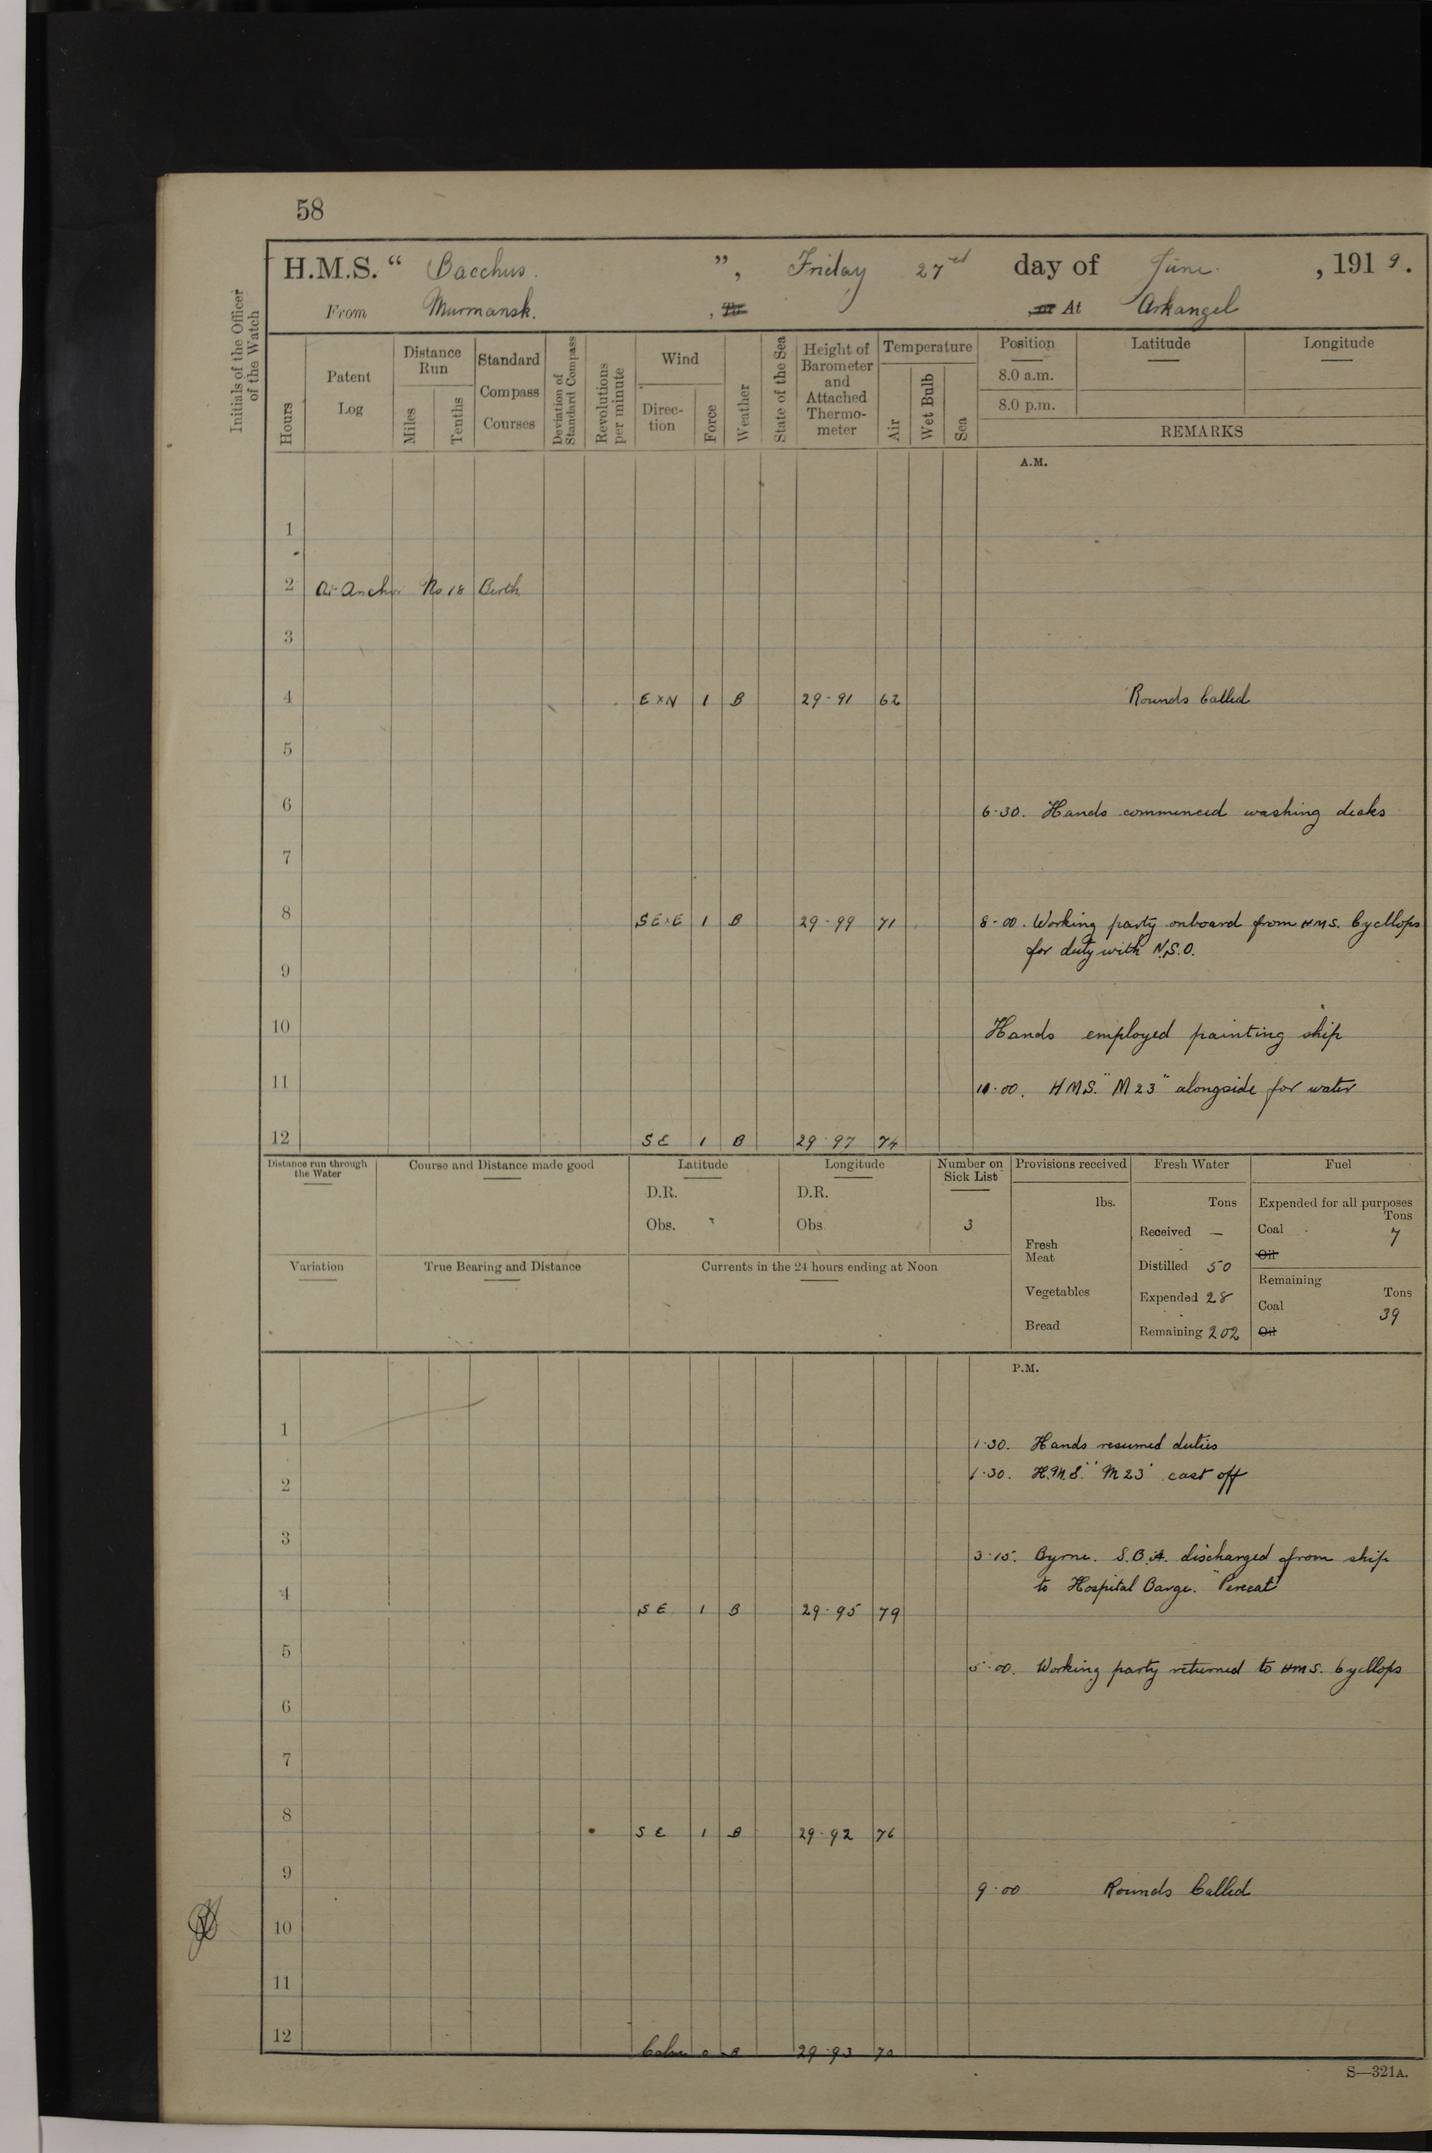 58
H.M.S. “ Bacchus. ”, Friday 27rd day of June. , 1919.
From Murmansk. , To or At Arkangel
Initials of the Officer of the Watch
Hours
Patent Log
Distance Run
Miles
Tenths
Standard Compass Courses
Deviation of Standard Compass
Revolutions per minute
Wind
Direc-tion
Force
Weather
State of the Sea
Height of Barometer and Attached Thermo-meter
Temperature
Air
Wet Bulb
Sea
Position Latitude Longitude
8.0 a.m.
8.0 p.m.
REMARKS
A.M.
1
2 At Anchor No 18 Berth
3
4 E×N 1 B 29·91 62 Rounds Called
5
6 6·30. Hands commenced washing decks
7
8 SE×E 1 B 29·99 71 8·00. Working party onboard from HMS. Cycllops
for duty with N.S.O.
9
10 Hands employed painting ship
11 11·00. HMS. "M23" alongside for water
12 SE 1 B 29·97 74
Distance run through the Water
Course and Distance made good
Latitude
D.R.
Obs.
Longitude
D.R.
Obs.
Number on Sick List
3
Provisions received
lbs.
Fresh Meat
Vegetables
Bread
Fresh Water
Tons
Received —
Distilled 50
Expended 28
Remaining 202
Fuel
Expended for all purposes
Tons
Coal 7
Oil
Remaining
Tons
Coal 39
Oil
Variation
True Bearing and Distance
Currents in the 24 hours ending at Noon
P.M.
1 1·30. Hands resumed duties
1·30. H.M.S. "M23" cast off
2
3 3·15. Byrne. S.B.A. discharged from ship
to Hospital Barge. "Perecat"
4 SE 1 B 29·95 79
5 5·00. Working party returned to HMS. Cycllops
6
7
8 SE 1 B 29·92 76
9 9·00 Rounds Called
10
11
12 Calm 0 B 29·93 70
S—321A.